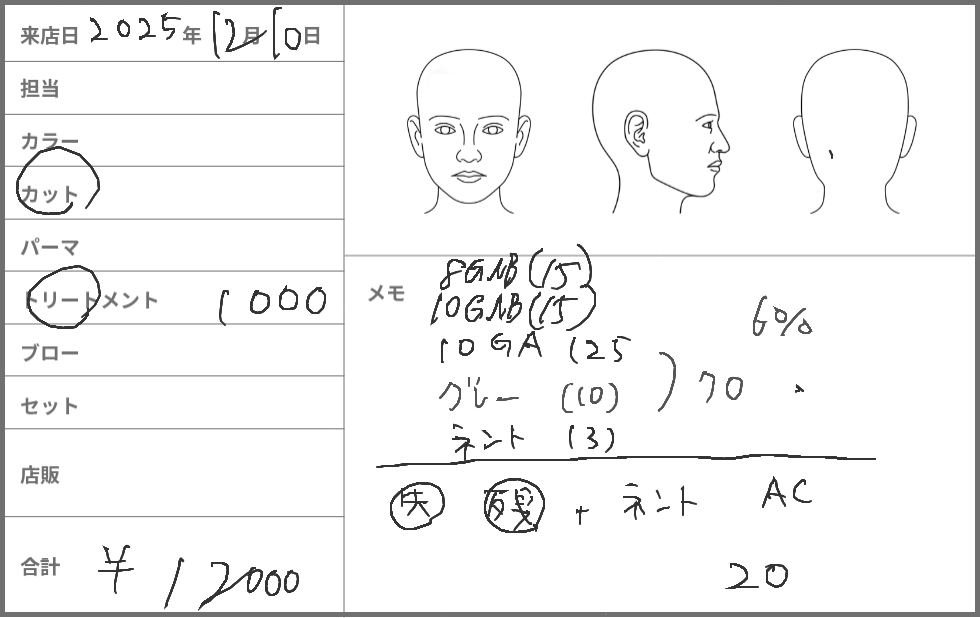 来店日 2025年 12月 10日
担当
カラー
カット
パーマ
トリートメント 1000
ブロー
セット
店販
合計 ¥12000
メモ
8GNB (15)
10GNB (15)
10GA (25
グレー (10) ) 70
ネント (3)
6%
失 残 + ネント AC
20